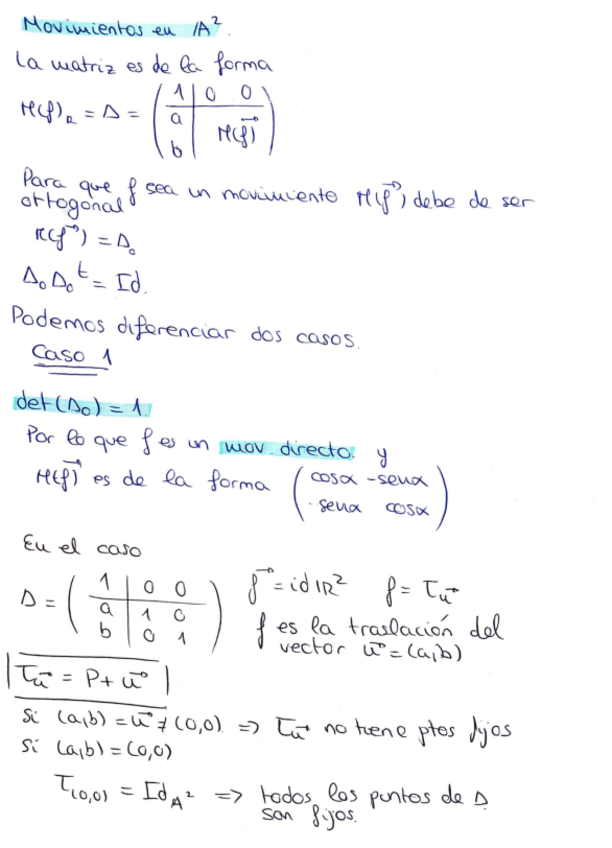 Movimientos en A²
La matriz es de la forma
M(f)_R = A = ( 1 | 0 0
a | M(f⃗)
b | )
Para que f sea un movimiento M(f⃗) debe de ser
ortogonal
M(f⃗) = A₀
A₀A₀ᵗ = Id.
Podemos diferenciar dos casos.
Caso 1
det(A₀) = 1.
Por lo que f es un mov. directo. y
M(f⃗) es de la forma ( cosα -senα
senα cosα )
En el caso
A = ( 1 | 0 0 f⃗ = id ℝ² f = τu⃗
a | 1 0 f es la traslación del
b | 0 1 ) vector u⃗ = (a,b)
τu⃗ = P + u⃗
Si (a,b) = u⃗ ≠ (0,0) => τu⃗ no tiene ptos fijos
Si (a,b) = (0,0)
τ(0,0) = Id A² => todos los puntos de A
son fijos.